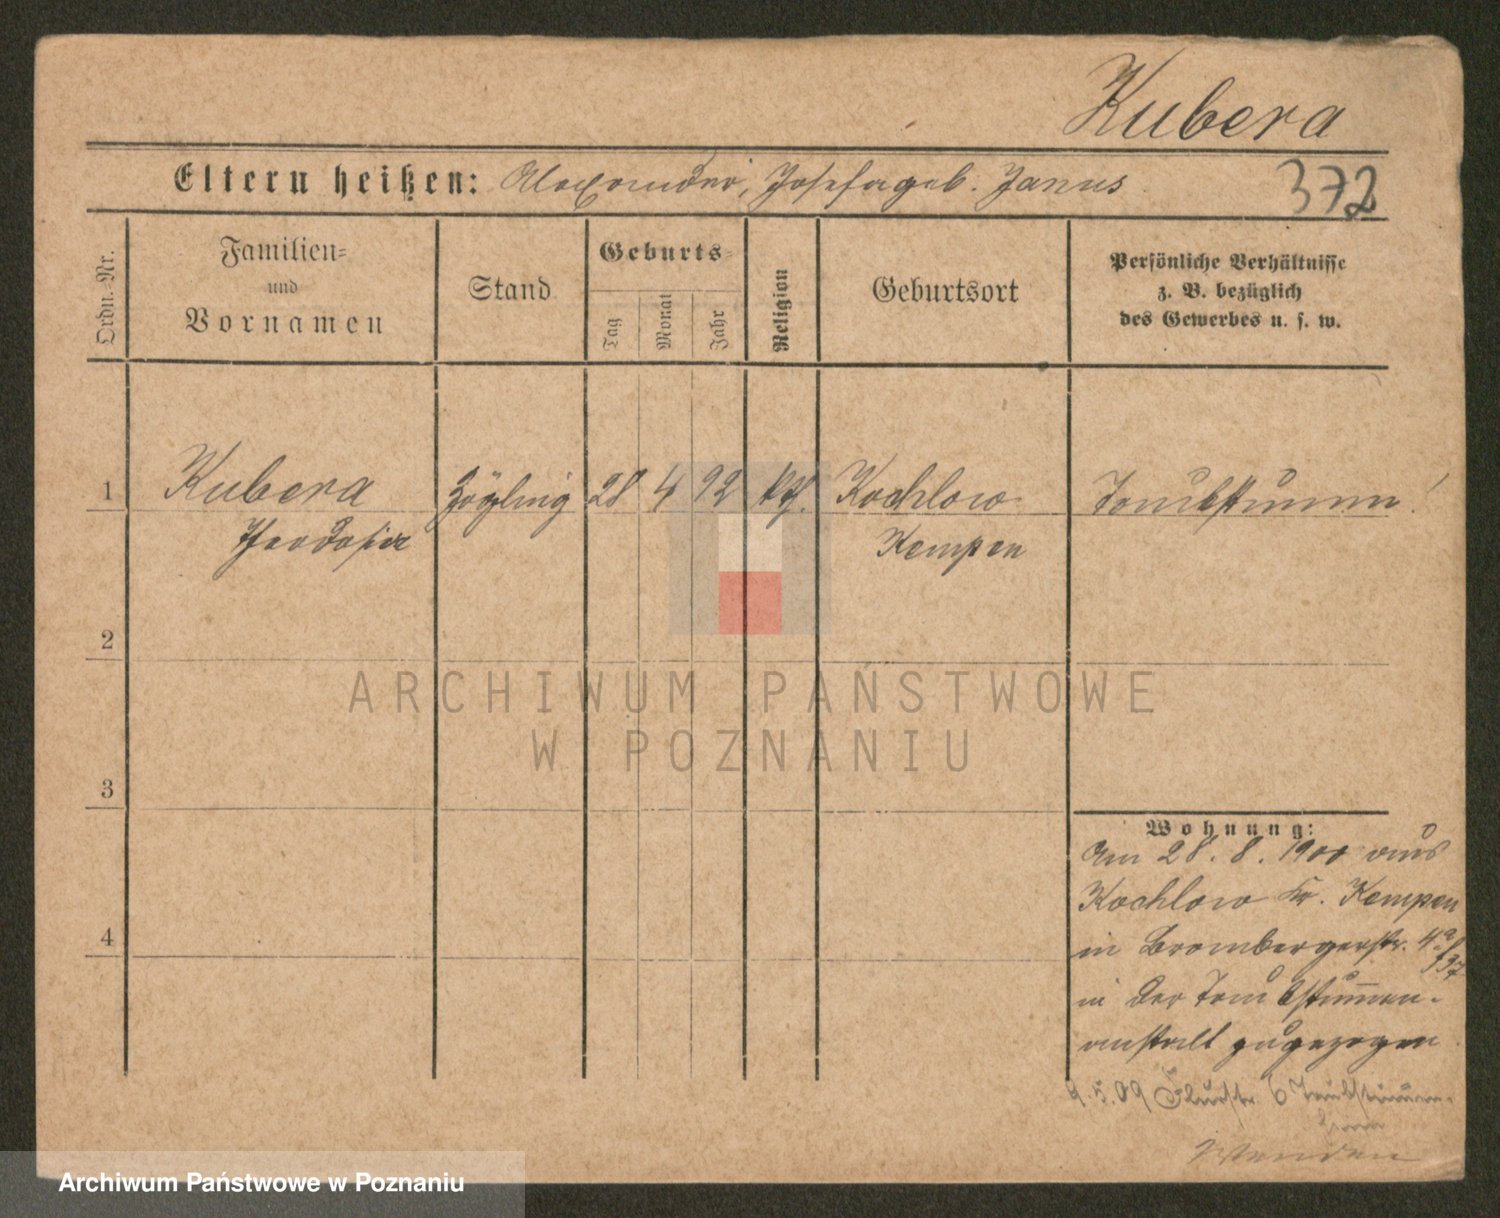 Kubera
Eltern heißen: Alexander, Josefa geb. Janus
372
Ordn.-Nr.
Familien-
und
Vornamen
Stand
Geburts-
Tag
Monat
Jahr
Religion
Geburtsort
Persönliche Verhältnisse
z. B. bezüglich
des Gewerbes u. s. w.
1 Kubera Zögling 28 4 92 kth. Kochlow Taubstumm!
Theodosia Kempen
2
3
4
Wohnung:
Am 28. 8. 1900 aus
Kochlow Kr. Kempen
in Brombergerstr. 4a
in der Taubstummen-
anstalt zugezogen
4.5.09 Flurstr. 6 Taubstumm.
Wenden
ARCHIWUM PAŃSTWOWE
W POZNANIU
Archiwum Państwowe w Poznaniu